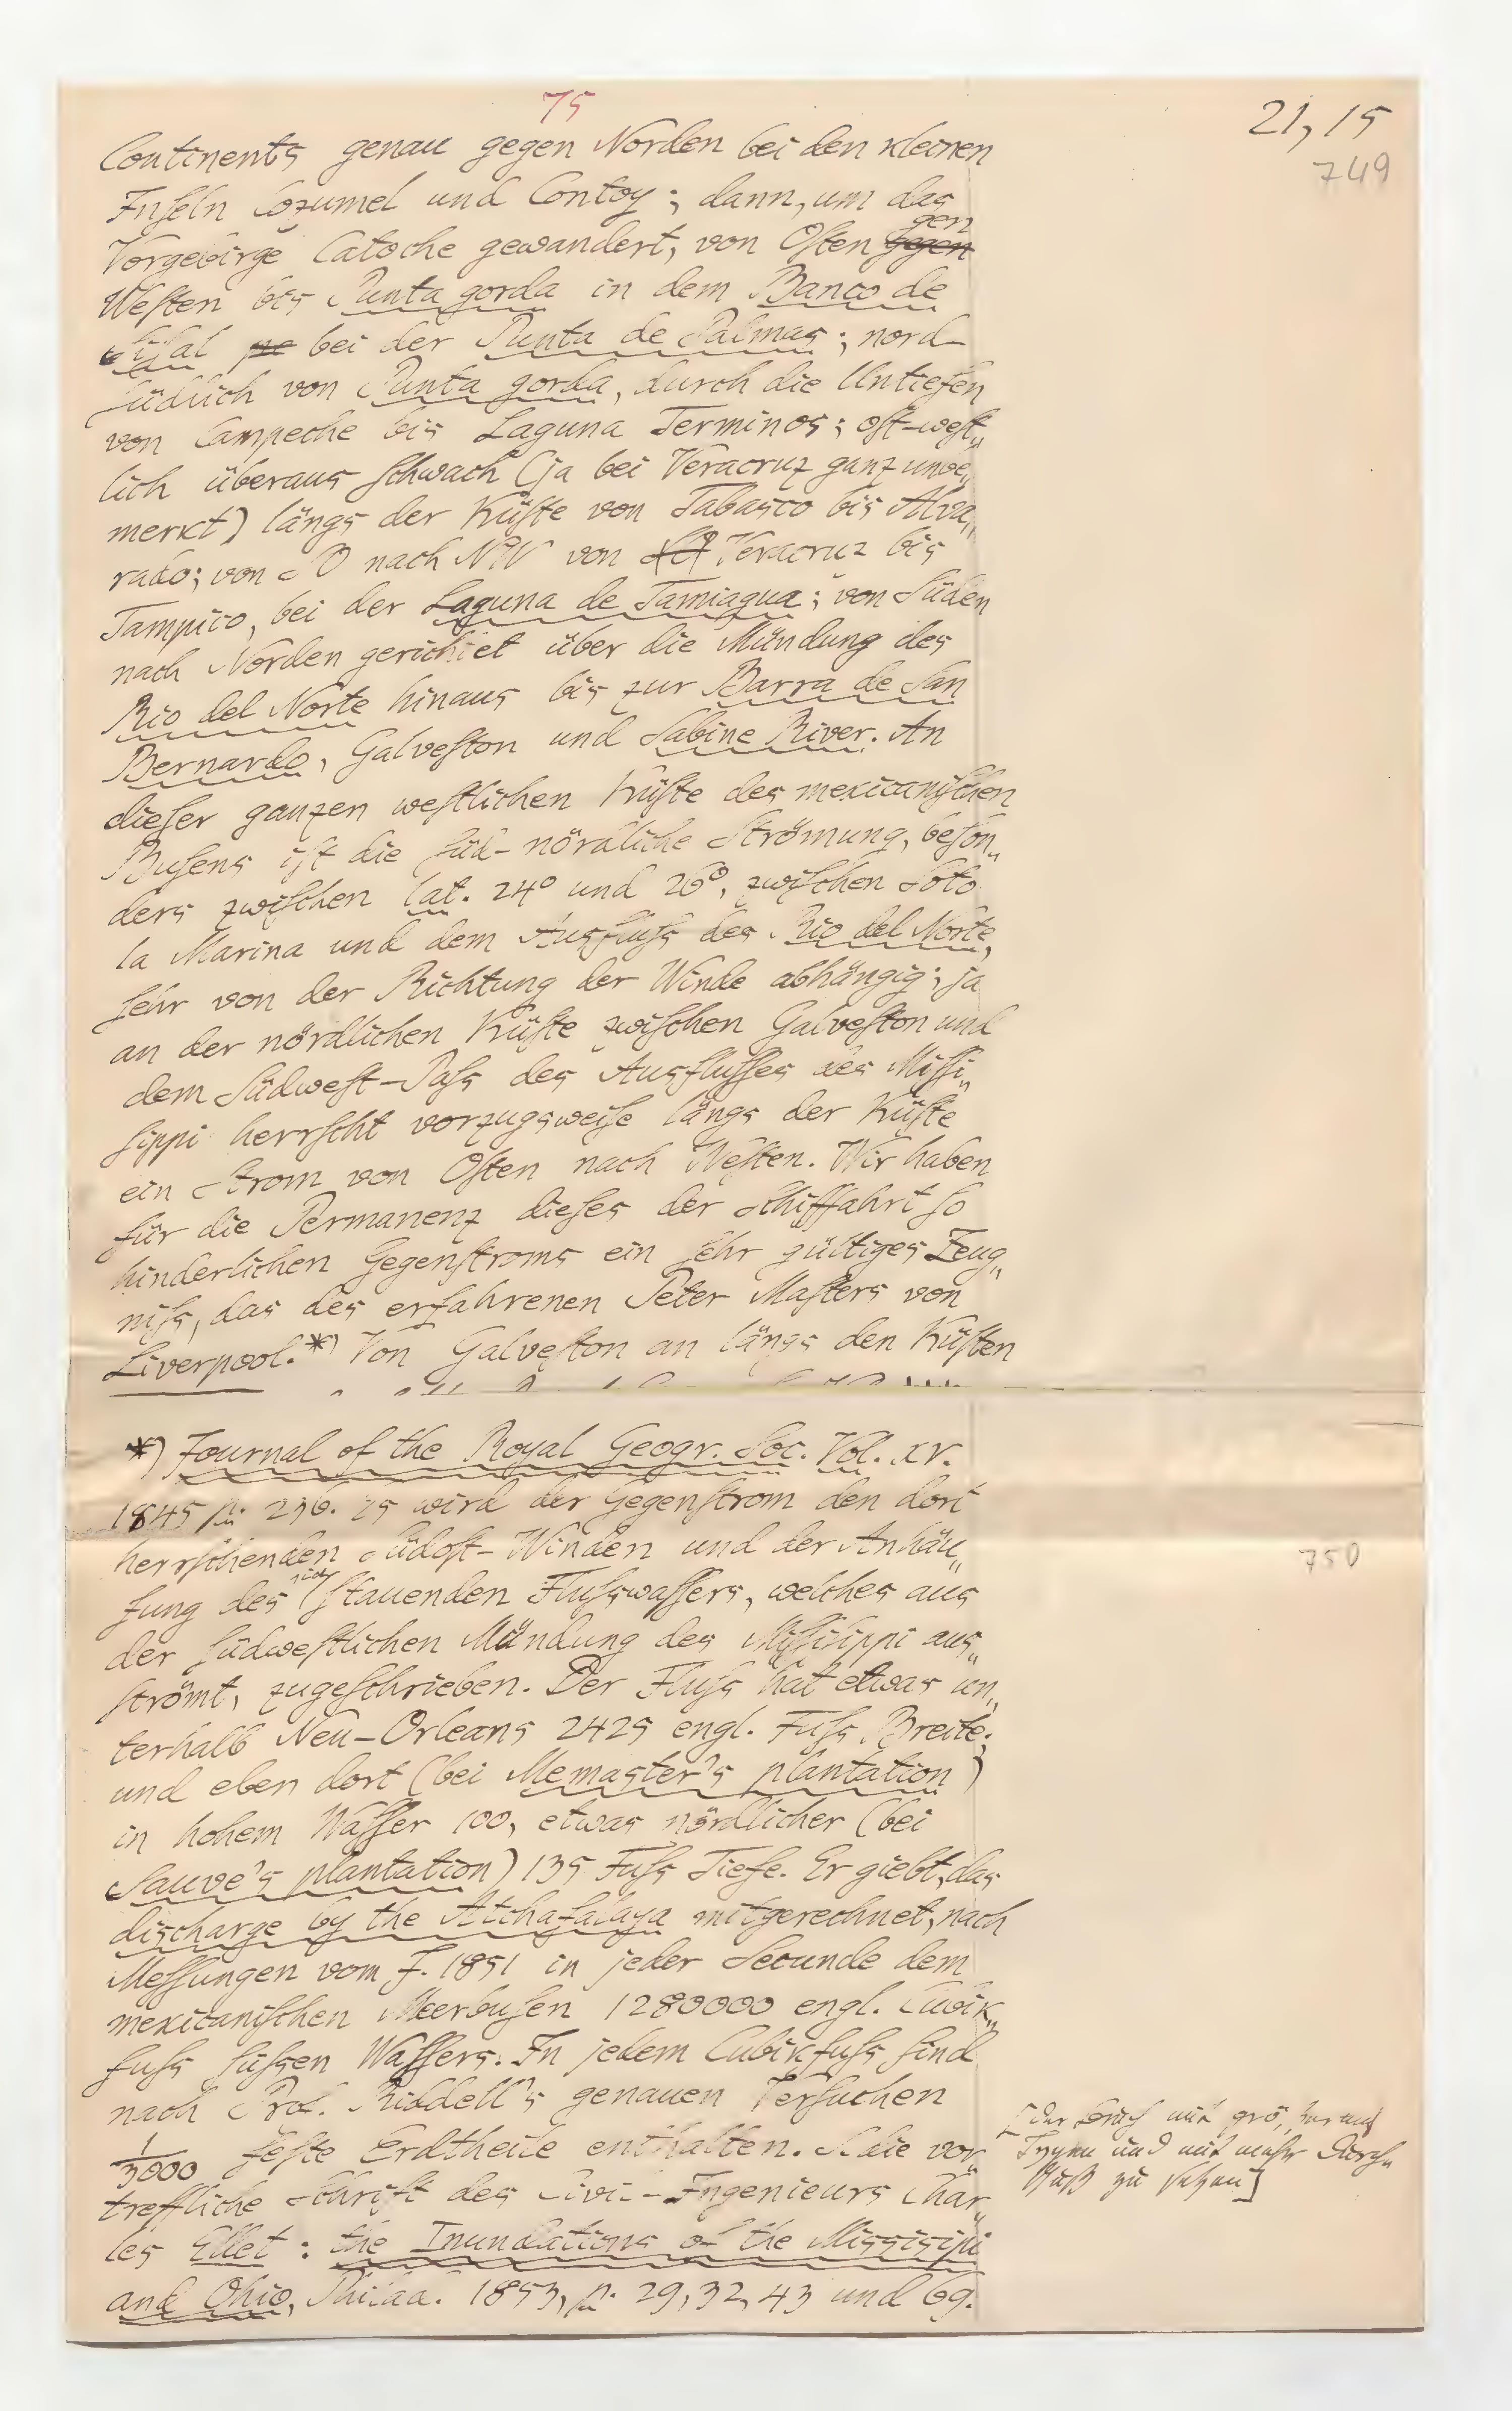 75
21, 15
749
Continents genau gegen Norden bei den kleinen
Inſeln Cozumel und Contoy; dann, um das
gen
Vorgebirge Catoche gewandert, von Oſten gegen
Weſten bis Punta gorda in dem Banco de
Siſal bei der Punta de Palmas; nord-
ſüdlich von Punta gorda, durch die Untiefen
von Campeche bis Laguna Terminos; oſt-weſt„
lich überaus ſchwach (ja bei Veracruz ganz unbe„
merkt) längs der Küſte von Tabasco bis Alva„
rado; von SO nach NW von Veracruz bis
Tampico, bei der Laguna de Tamiagua; von Süden
nach Norden gerichtet über die Mündung des
Rio del Norte hinaus bis zur Barra de San
Bernardo, Galveſton und Sabine River. An
dieſer ganzen weſtlichen Küſte des mexicaniſchen
Buſens iſt die ſüd-nördliche Strömung, beſon„
ders zwiſchen lat. 24° und 26°, zwiſchen Soto
la Marina und dem Ausfluſs des Rio del Norte,
ſehr von der Richtung der Winde abhängig; ja
an der nördlichen Küſte zwiſchen Galveſton und
dem Südweſt-Paſs des Ausfluſſes des Miſſi„
ſippi herrſcht vorzugsweiſe längs der Küſte
ein Strom von Oſten nach Weſten. Wir haben
für die Permanenz dieſes der Schiffahrt ſo
hinderlichen Gegenſtroms ein ſehr gültiges Zeug„
niſs, das des erfahrenen Peter Maſters von
Liverpool.*) Von Galveſton an längs den Küſten
*) Journal of the Royal Geogr. Soc. Vol. XV.
1845 p. 236. Es wird der Gegenſtrom den dort
herrſchenden Südoſt-Winden und der Anhäu„
sich
fung des ſtauenden Fluſswaſſers, welches aus
der ſüdweſtlichen Mündung des Miſſiſippi aus„
ſtrömt, zugeſchrieben. Der Fluſs hat etwas un„
terhalb Neu-Orleans 2425 engl. Fuſs Breite;
und eben dort (bei Memaster's plantation)
in hohem Waſſer 100, etwas nördlicher (bei
Sauve's plantation) 135 Fuſs Tiefe. Er giebt, das
discharge by the Atchafalaya mitgerechnet, nach
Meſſungen vom J. 1851 in jeder Secunde dem
mexicaniſchen Meerbuſen 1280000 engl. Cubik„
fuſs ſüſsen Waſſers. In jedem Cubikfuſs ſind
nach Prof. Riddell's genauen Verſuchen
1/3000 feſte Erdtheile enthalten. S. die vor„
treffliche Schrift des Civil-Ingenieurs Char„
les Ellet: the Inundations of the Missisipi
and Ohio, Philad. 1853, p. 29, 32, 43 und 69.
750
[der Bruch mit
und mit mehr Durch„
zu ſetzen]